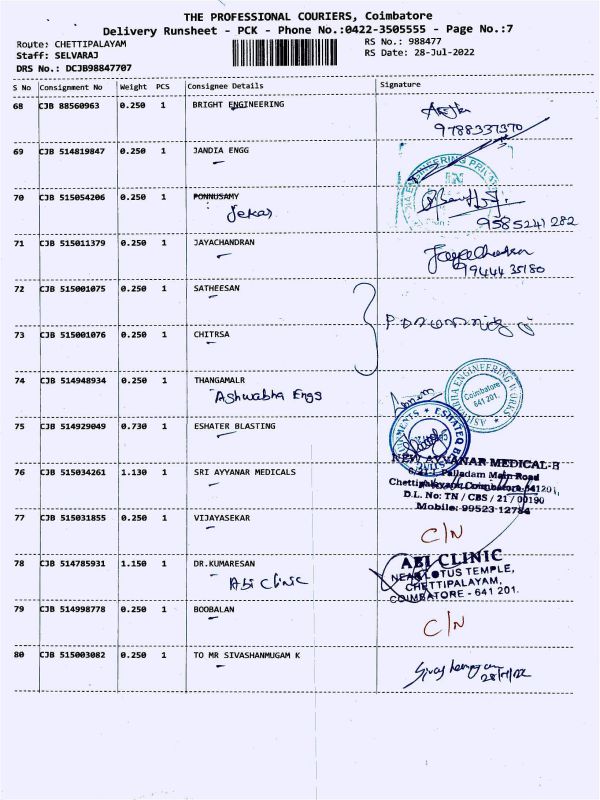 THE PROFESSIONAL COURIERS, Coimbatore
Delivery Runsheet - PCK - Phone No.:0422-3505555 - Page No.:7
Route: CHETTIPALAYAM RS No.: 988477
Staff: SELVARAJ RS Date: 28-Jul-2022
DRS No.: DCJB98847707
S No Consignment No Weight PCS Consignee Details Signature
68 CJB 88560963 0.250 1 BRIGHT ENGINEERING
9788337370
69 CJB 514819847 0.250 1 JANDIA ENGG
ENGINEERING
70 CJB 515054206 0.250 1 PONNUSAMY
Sekar 9585241282
71 CJB 515011379 0.250 1 JAYACHANDRAN Jayachandran
99444 35180
72 CJB 515001075 0.250 1 SATHEESAN
73 CJB 515001076 0.250 1 CHITRSA
74 CJB 514948934 0.250 1 THANGAMALR
Ashwabha Engs
ENGINEERING WORKS
Coimbatore
641 201.
75 CJB 514929049 0.730 1 ESHATER BLASTING
ESHATEQ
NEW AYYANAR MEDICAL-B
76 CJB 515034261 1.130 1 SRI AYYANAR MEDICALS
Palladam Main Road
D.L. No: TN / CBS / 21 / 00190
Mobile: 99523 12784
77 CJB 515031855 0.250 1 VIJAYASEKAR C/N
78 CJB 514785931 1.150 1 DR.KUMARESAN
Abi Clinic
ABI CLINIC
NEAR LOTUS TEMPLE,
CHETTIPALAYAM,
COIMBATORE - 641 201.
79 CJB 514998778 0.250 1 BOOBALAN C/N
80 CJB 515003082 0.250 1 TO MR SIVASHANMUGAM K